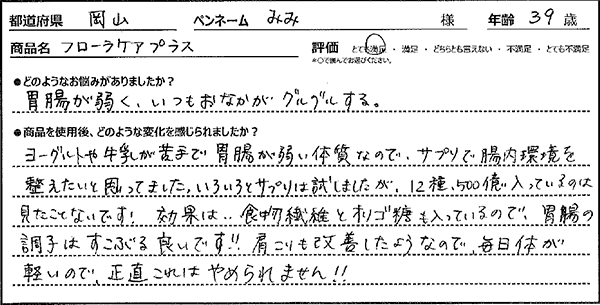 都道府県 岡山 ペンネーム みみ 様 年齢 39 歳
商品名 フローラケアプラス 評価 とても満足 ・ 満足 ・ どちらとも言えない ・ 不満足 ・ とても不満足
※○で囲んでお選びください。
●どのようなお悩みがありましたか?
胃腸が弱く、いつもおなかがグルグルする。
●商品を使用後、どのような変化を感じられましたか?
ヨーグルトや牛乳が苦手で胃腸が弱い体質なので、サプリで腸内環境を
整えたいと思ってました。いろいろとサプリは試しましたが、12種、500億入っているのは
見たことないです! 効果は‥食物繊維とオリゴ糖も入っているので、胃腸の
調子はすこぶる良いです!! 肩こりも改善したようなので、毎日体が
軽いので、正直これはやめられません!!